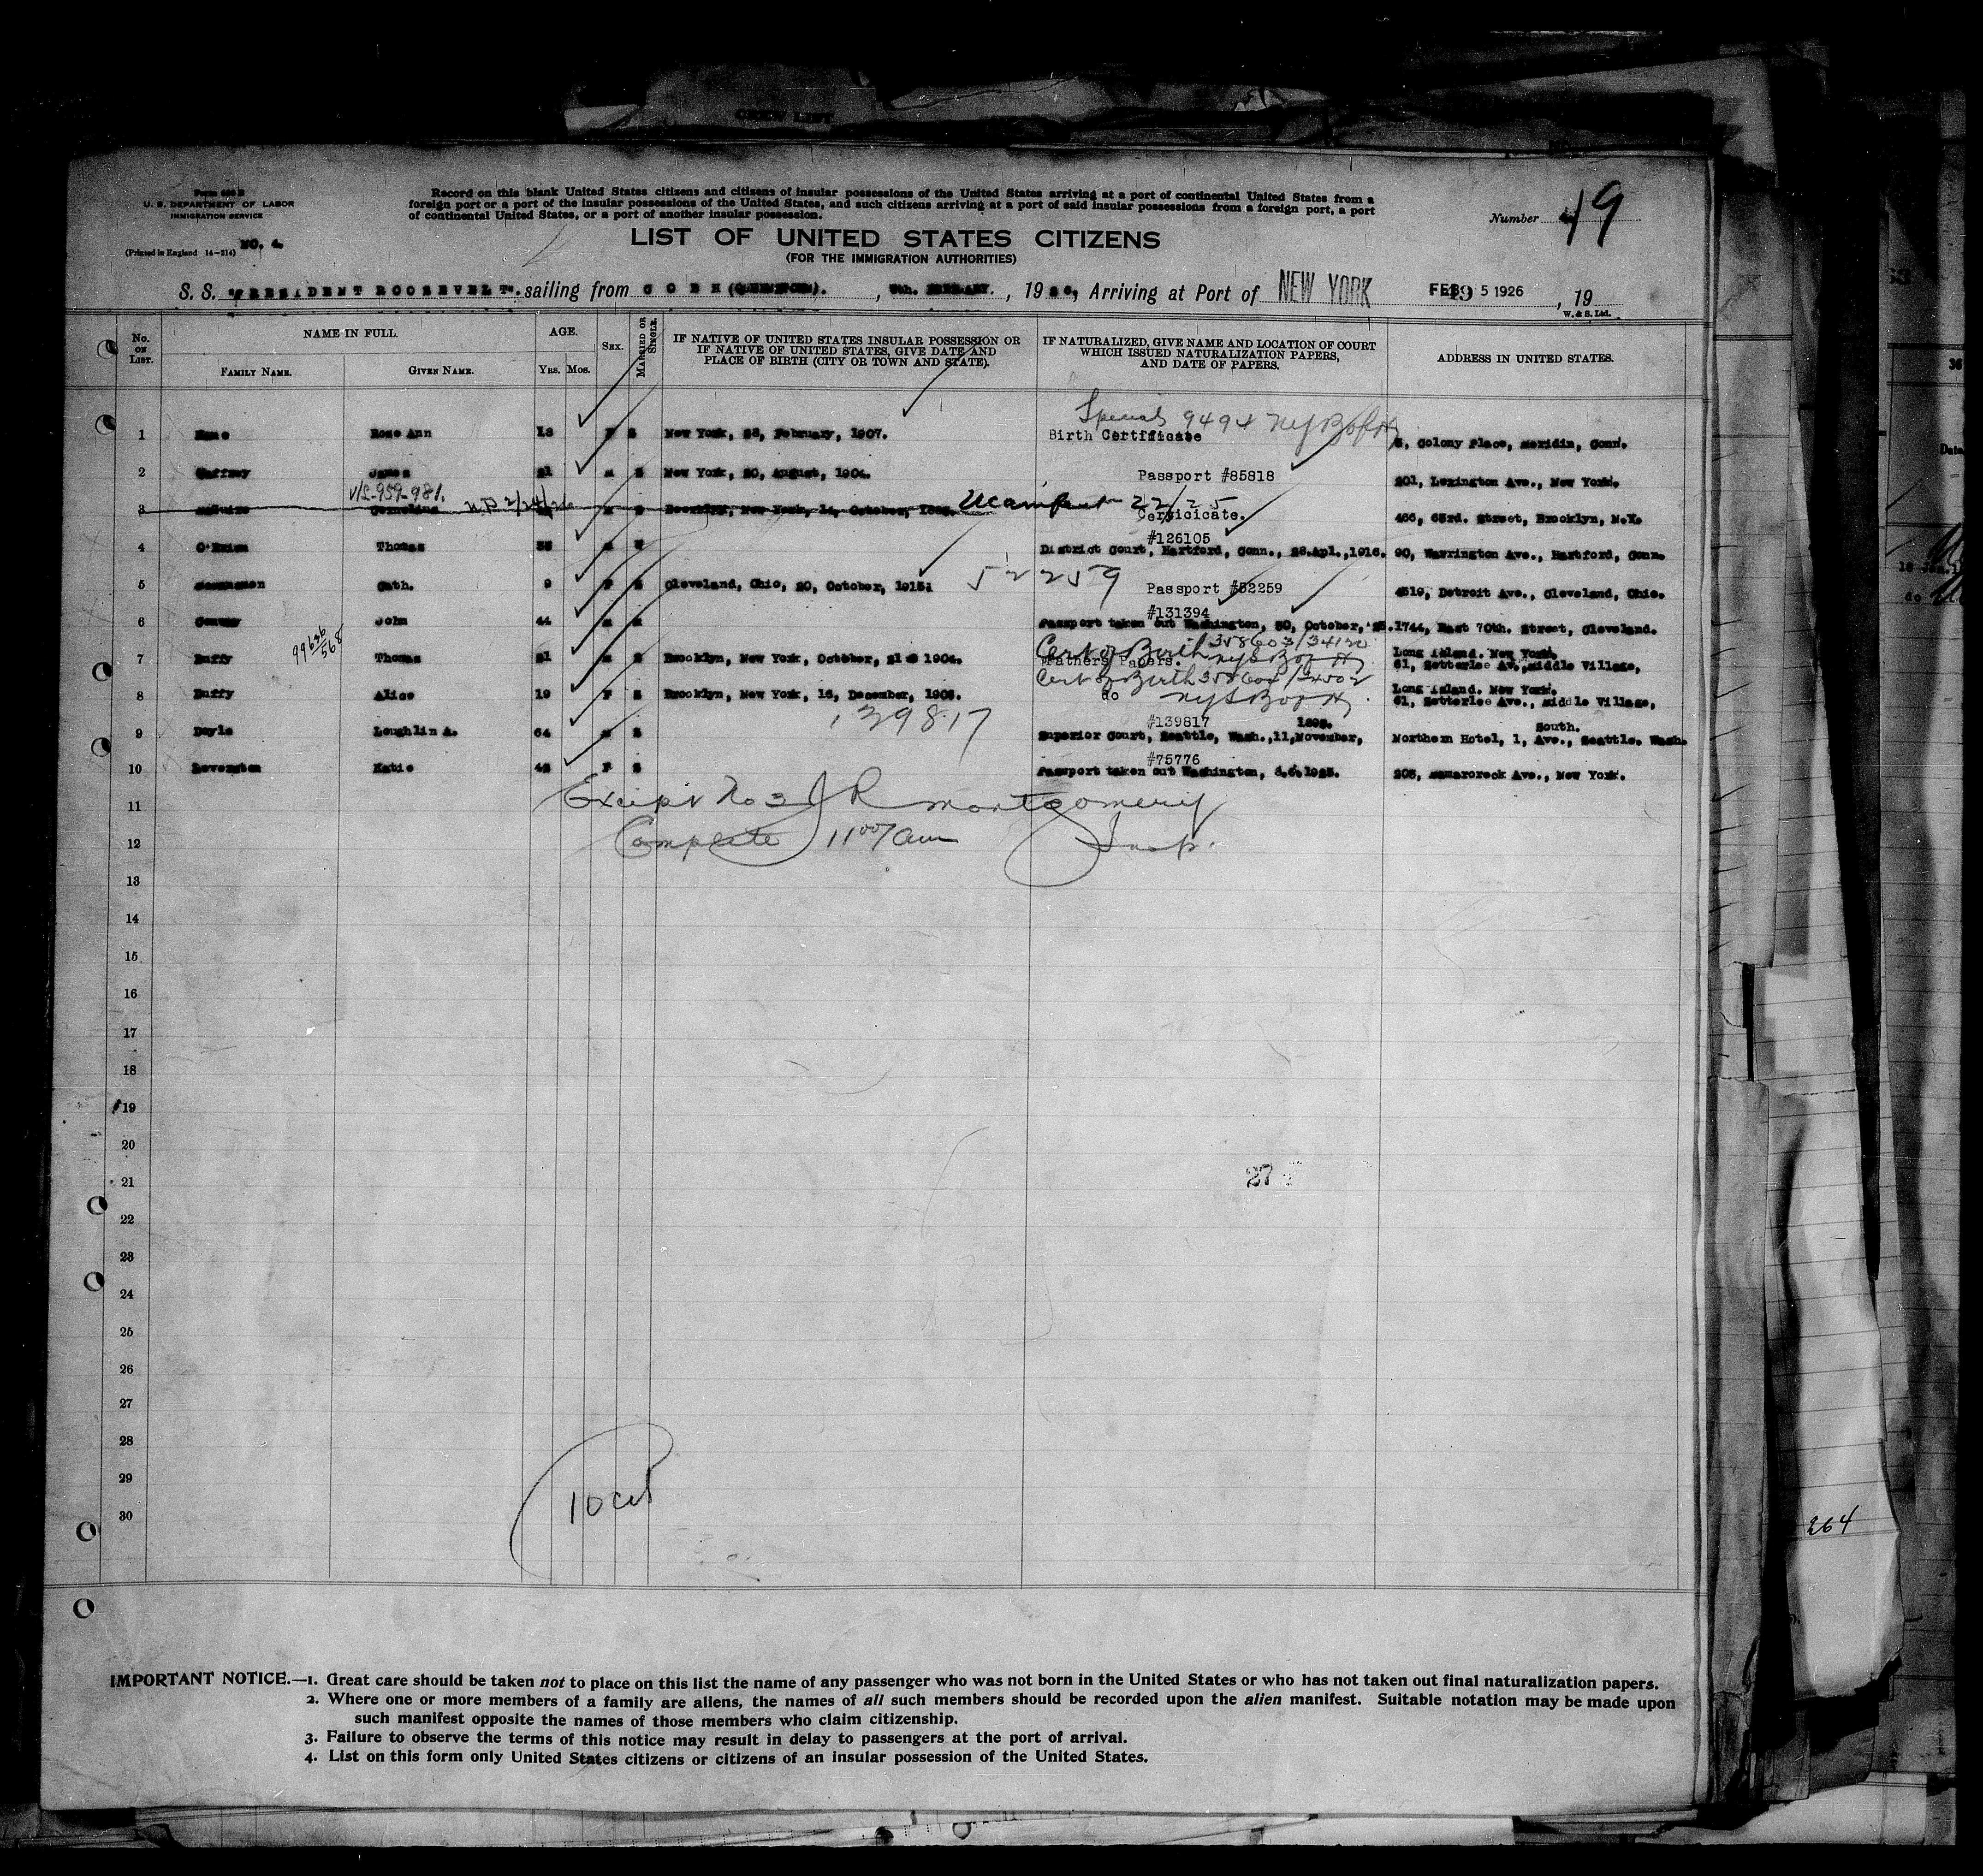 Form 630 B
U. S. DEPARTMENT OF LABOR
IMMIGRATION SERVICE
(Printed in England 14—214) NO. 4.
Record on this blank United States citizens and citizens of insular possessions of the United States arriving at a port of continental United States from a
foreign port or a port of the insular possessions of the United States, and such citizens arriving at a port of said insular possessions from a foreign port, a port
of continental United States, or a port of another insular possession.
Number 19
LIST OF UNITED STATES CITIZENS
(FOR THE IMMIGRATION AUTHORITIES)
S. S. "PRESIDENT ROOSEVELT". sailing from COBH (QUEENSTOWN). , FEBRUARY. , 1926, Arriving at Port of NEW YORK FEB 5 1926 , 19
W. & S. Ltd.
No. ON LIST. NAME IN FULL. AGE. SEX. MARRIED OR SINGLE. IF NATIVE OF UNITED STATES INSULAR POSSESSION OR IF NATIVE OF UNITED STATES, GIVE DATE AND PLACE OF BIRTH (CITY OR TOWN AND STATE). IF NATURALIZED, GIVE NAME AND LOCATION OF COURT WHICH ISSUED NATURALIZATION PAPERS, AND DATE OF PAPERS. ADDRESS IN UNITED STATES.
FAMILY NAME. GIVEN NAME. YRS. MOS.
9494
1 Rose Ann 18 F S New York, February, 1907. Birth Certificate Colony Place, Meridin, Conn.
2 Gaffney James 21 M S New York, 20, August, 1904. Passport #85818 201, Lexington Ave., New York.
V/L-959-981.
3 McGuire Cornelius M S Brooklyn, New York, 14, October, Manifest 22/25 Cerficicate. 466, 63rd. Street, Brooklyn, N.Y.
#126105
4 O'Brien Thomas M District Court, Hartford, Conn., 28.Apl.,1916. 90, Warrington Ave., Hartford, Conn.
5 Cath. 9 F S Cleveland, Ohio, 20, October, 1915. 52259 Passport #52259 4519, Detroit Ave., Cleveland, Ohio.
#131394
6 John 44 M M Passport taken out Washington, October, 1744, East 70th. Street, Cleveland.
99636/568
Cert of Birth
7 Duffy Thomas 21 M S Brooklyn, New York, October, 21 1904. Fathers Papers. Long Island. New York.
61, Satterlee Av., Middle Village,
Cert of Birth
8 Duffy Alice 19 F S Brooklyn, New York, 16, December, 1906. do Long Island. New York.
61, Satterlee Ave., Middle Village,
139817
#139817
9 Doyle Loughlin A. 64 M S Superior Court, Seattle, Wash., 11, November, South.
Northern Hotel, 1, Ave., Seattle. Wash.
#75776
10 Levenston Katie F S Passport taken out Washington, 1925. Mamaroneck Ave., New York.
11 Except No 3 J R Montgomery
12 Complete 11 00/am Insp.
13
14
15
16
17
18
19
20
21 27
22
23
24
25
26
27
28
29
30
IMPORTANT NOTICE.—1. Great care should be taken not to place on this list the name of any passenger who was not born in the United States or who has not taken out final naturalization papers.
2. Where one or more members of a family are aliens, the names of all such members should be recorded upon the alien manifest. Suitable notation may be made upon
such manifest opposite the names of those members who claim citizenship.
3. Failure to observe the terms of this notice may result in delay to passengers at the port of arrival.
4. List on this form only United States citizens or citizens of an insular possession of the United States.
264